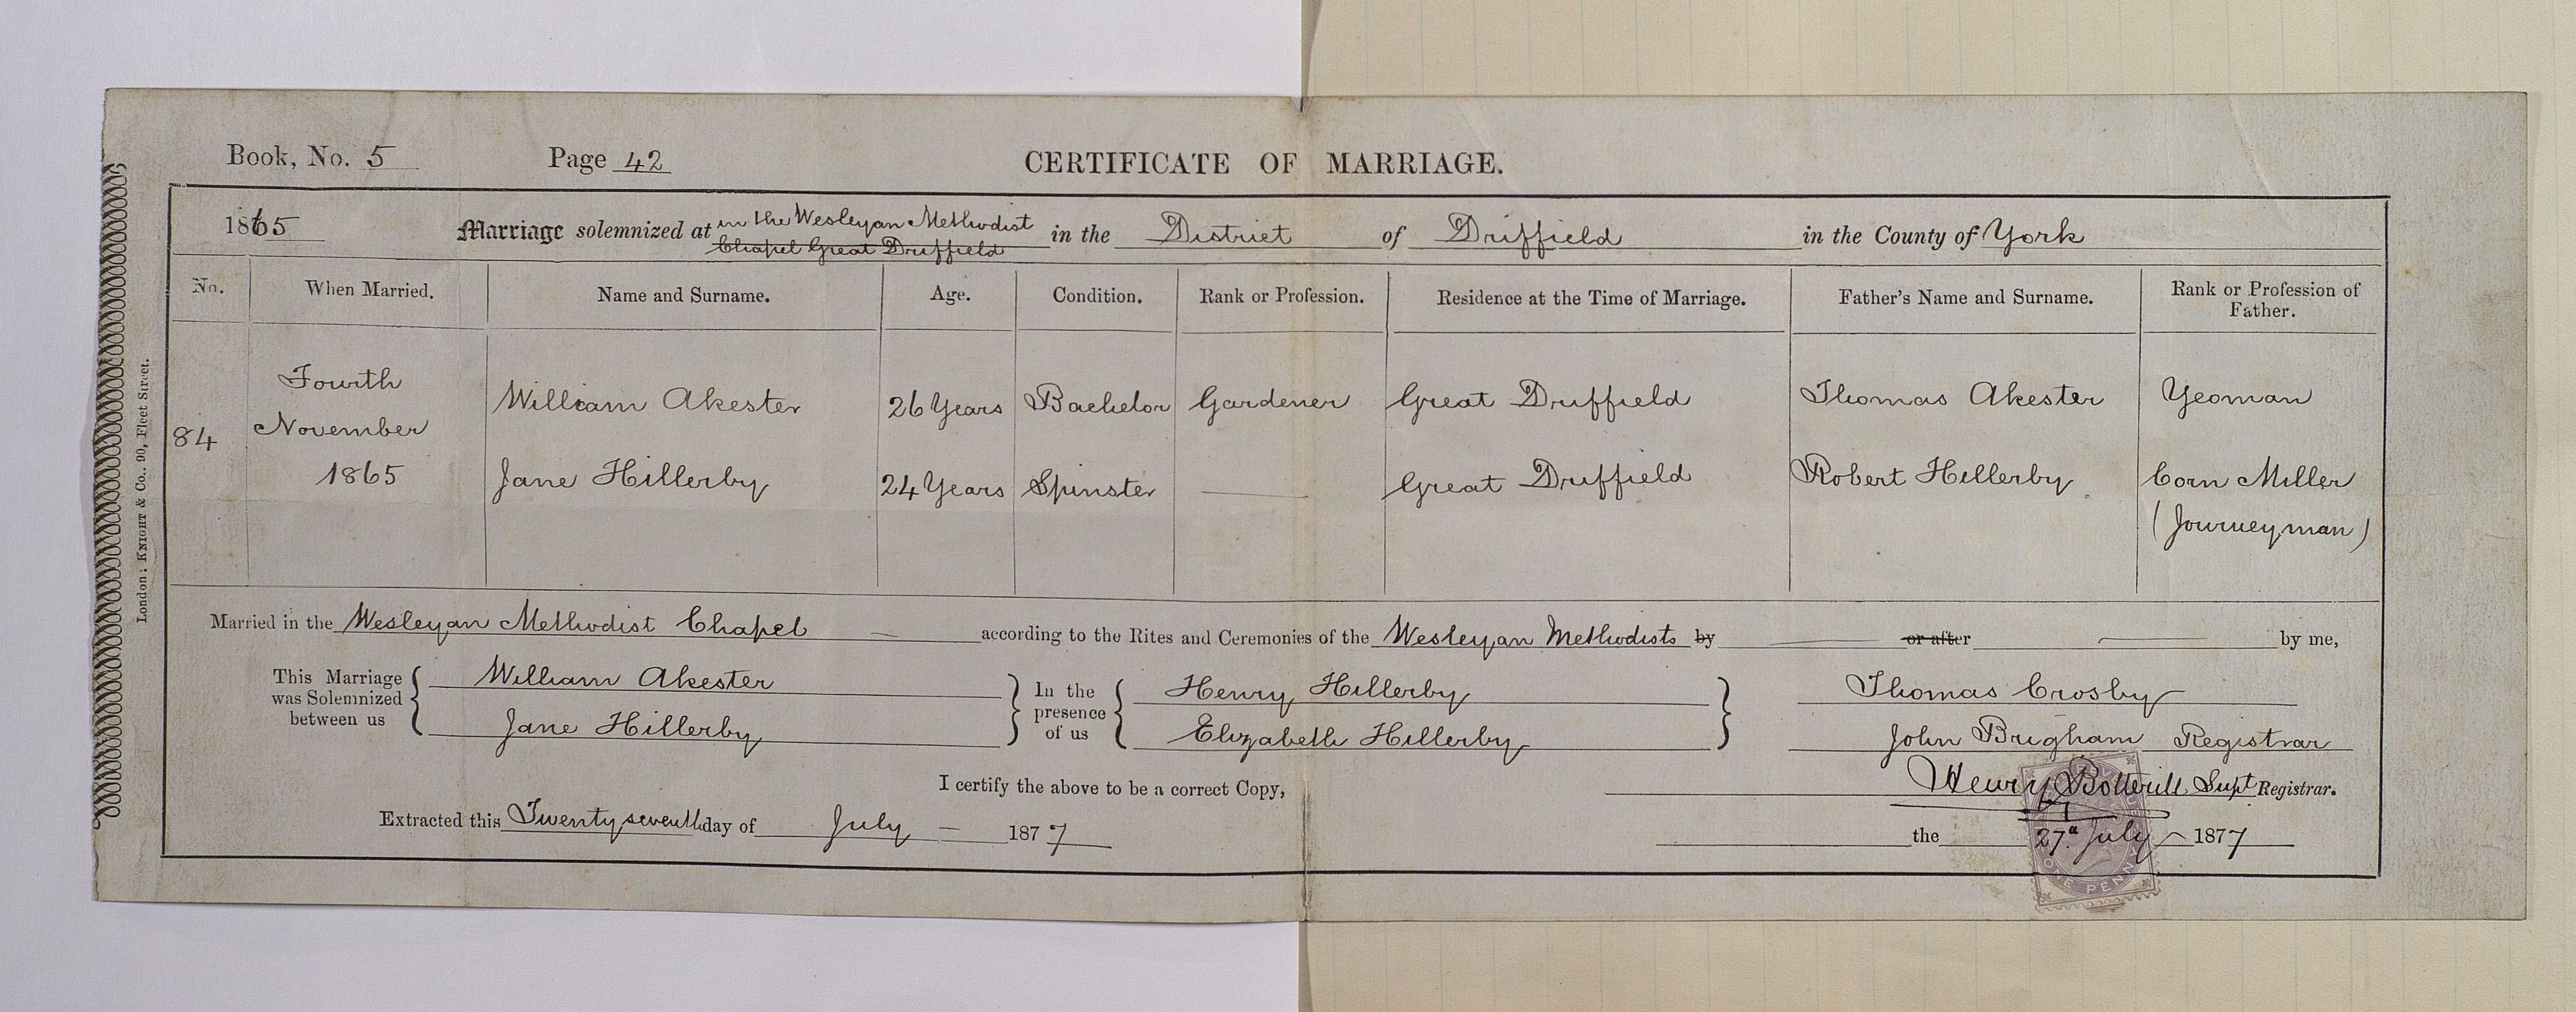 Book, No. 5 Page 42 CERTIFICATE OF MARRIAGE.
1865 Marriage solemnized at in the Wesleyan Methodist Chapel Great Driffield in the District of Driffield in the County of York
No. When Married. Name and Surname. Age. Condition. Rank or Profession. Residence at the Time of Marriage. Father's Name and Surname. Rank or Profession of Father.
84 Fourth November 1865
William Akester 26 Years Bachelor Gardener Great Driffield Thomas Akester Yeoman
Jane Hillerby 24 Years Spinster Great Driffield Robert Hillerby Corn Miller (Journeyman)
Married in the Wesleyan Methodist Chapel according to the Rites and Ceremonies of the Wesleyan Methodists by or after by me,
This Marriage was Solemnized between us
William Akester
Jane Hillerby
In the presence of us
Henry Hillerby
Elizabeth Hillerby
Thomas Crosby
John Brigham Registrar
I certify the above to be a correct Copy, Henry Botterill Supt Registrar.
Extracted this Twenty seventh day of July 1877 the 27th July 1877
ONE PENNY
London: KNIGHT & Co., 90, Fleet Street.